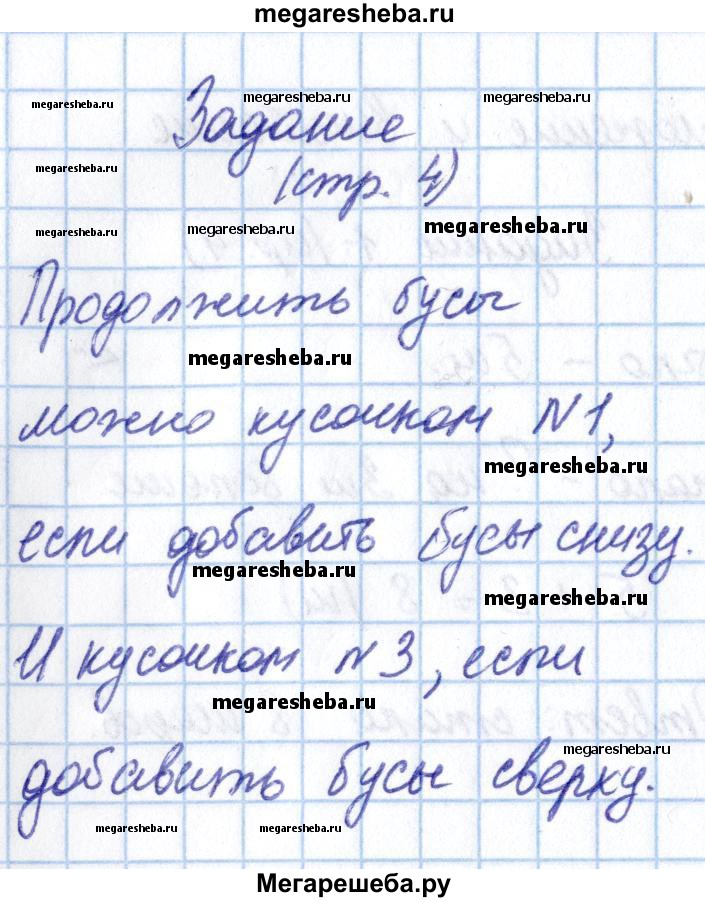 megaresheba.ru
megaresheba.ru megaresheba.ru megaresheba.ru
Задание
megaresheba.ru
(стр. 4)
megaresheba.ru megaresheba.ru megaresheba.ru
Продолжить бусы
megaresheba.ru
можно кусочком N1,
megaresheba.ru
если добавить бусы снизу.
megaresheba.ru megaresheba.ru
И кусочком N3, если
megaresheba.ru
megaresheba.ru
добавить бусы сверху.
megaresheba.ru megaresheba.ru
Мегарешеба.ру